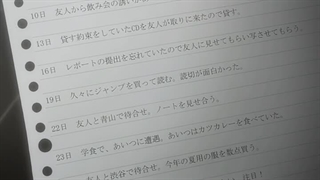 10日 友人から飲み会の誘いが
13日 貸す約束をしていたCDを友人が取りに来たので貸す。
16日 レポートの提出を忘れていたので友人に見せてもらい写させてもらう。
19日 久々にジャンプを買って読む、読切が面白かった。
22日 友人と青山で待合せ、ノートを見せ合う。
23日 学食で、あいつに遭遇。あいつはカツカレーを食べていた。
友人と渋谷で待合せ、今年の夏用の服を数点買う。
注目！